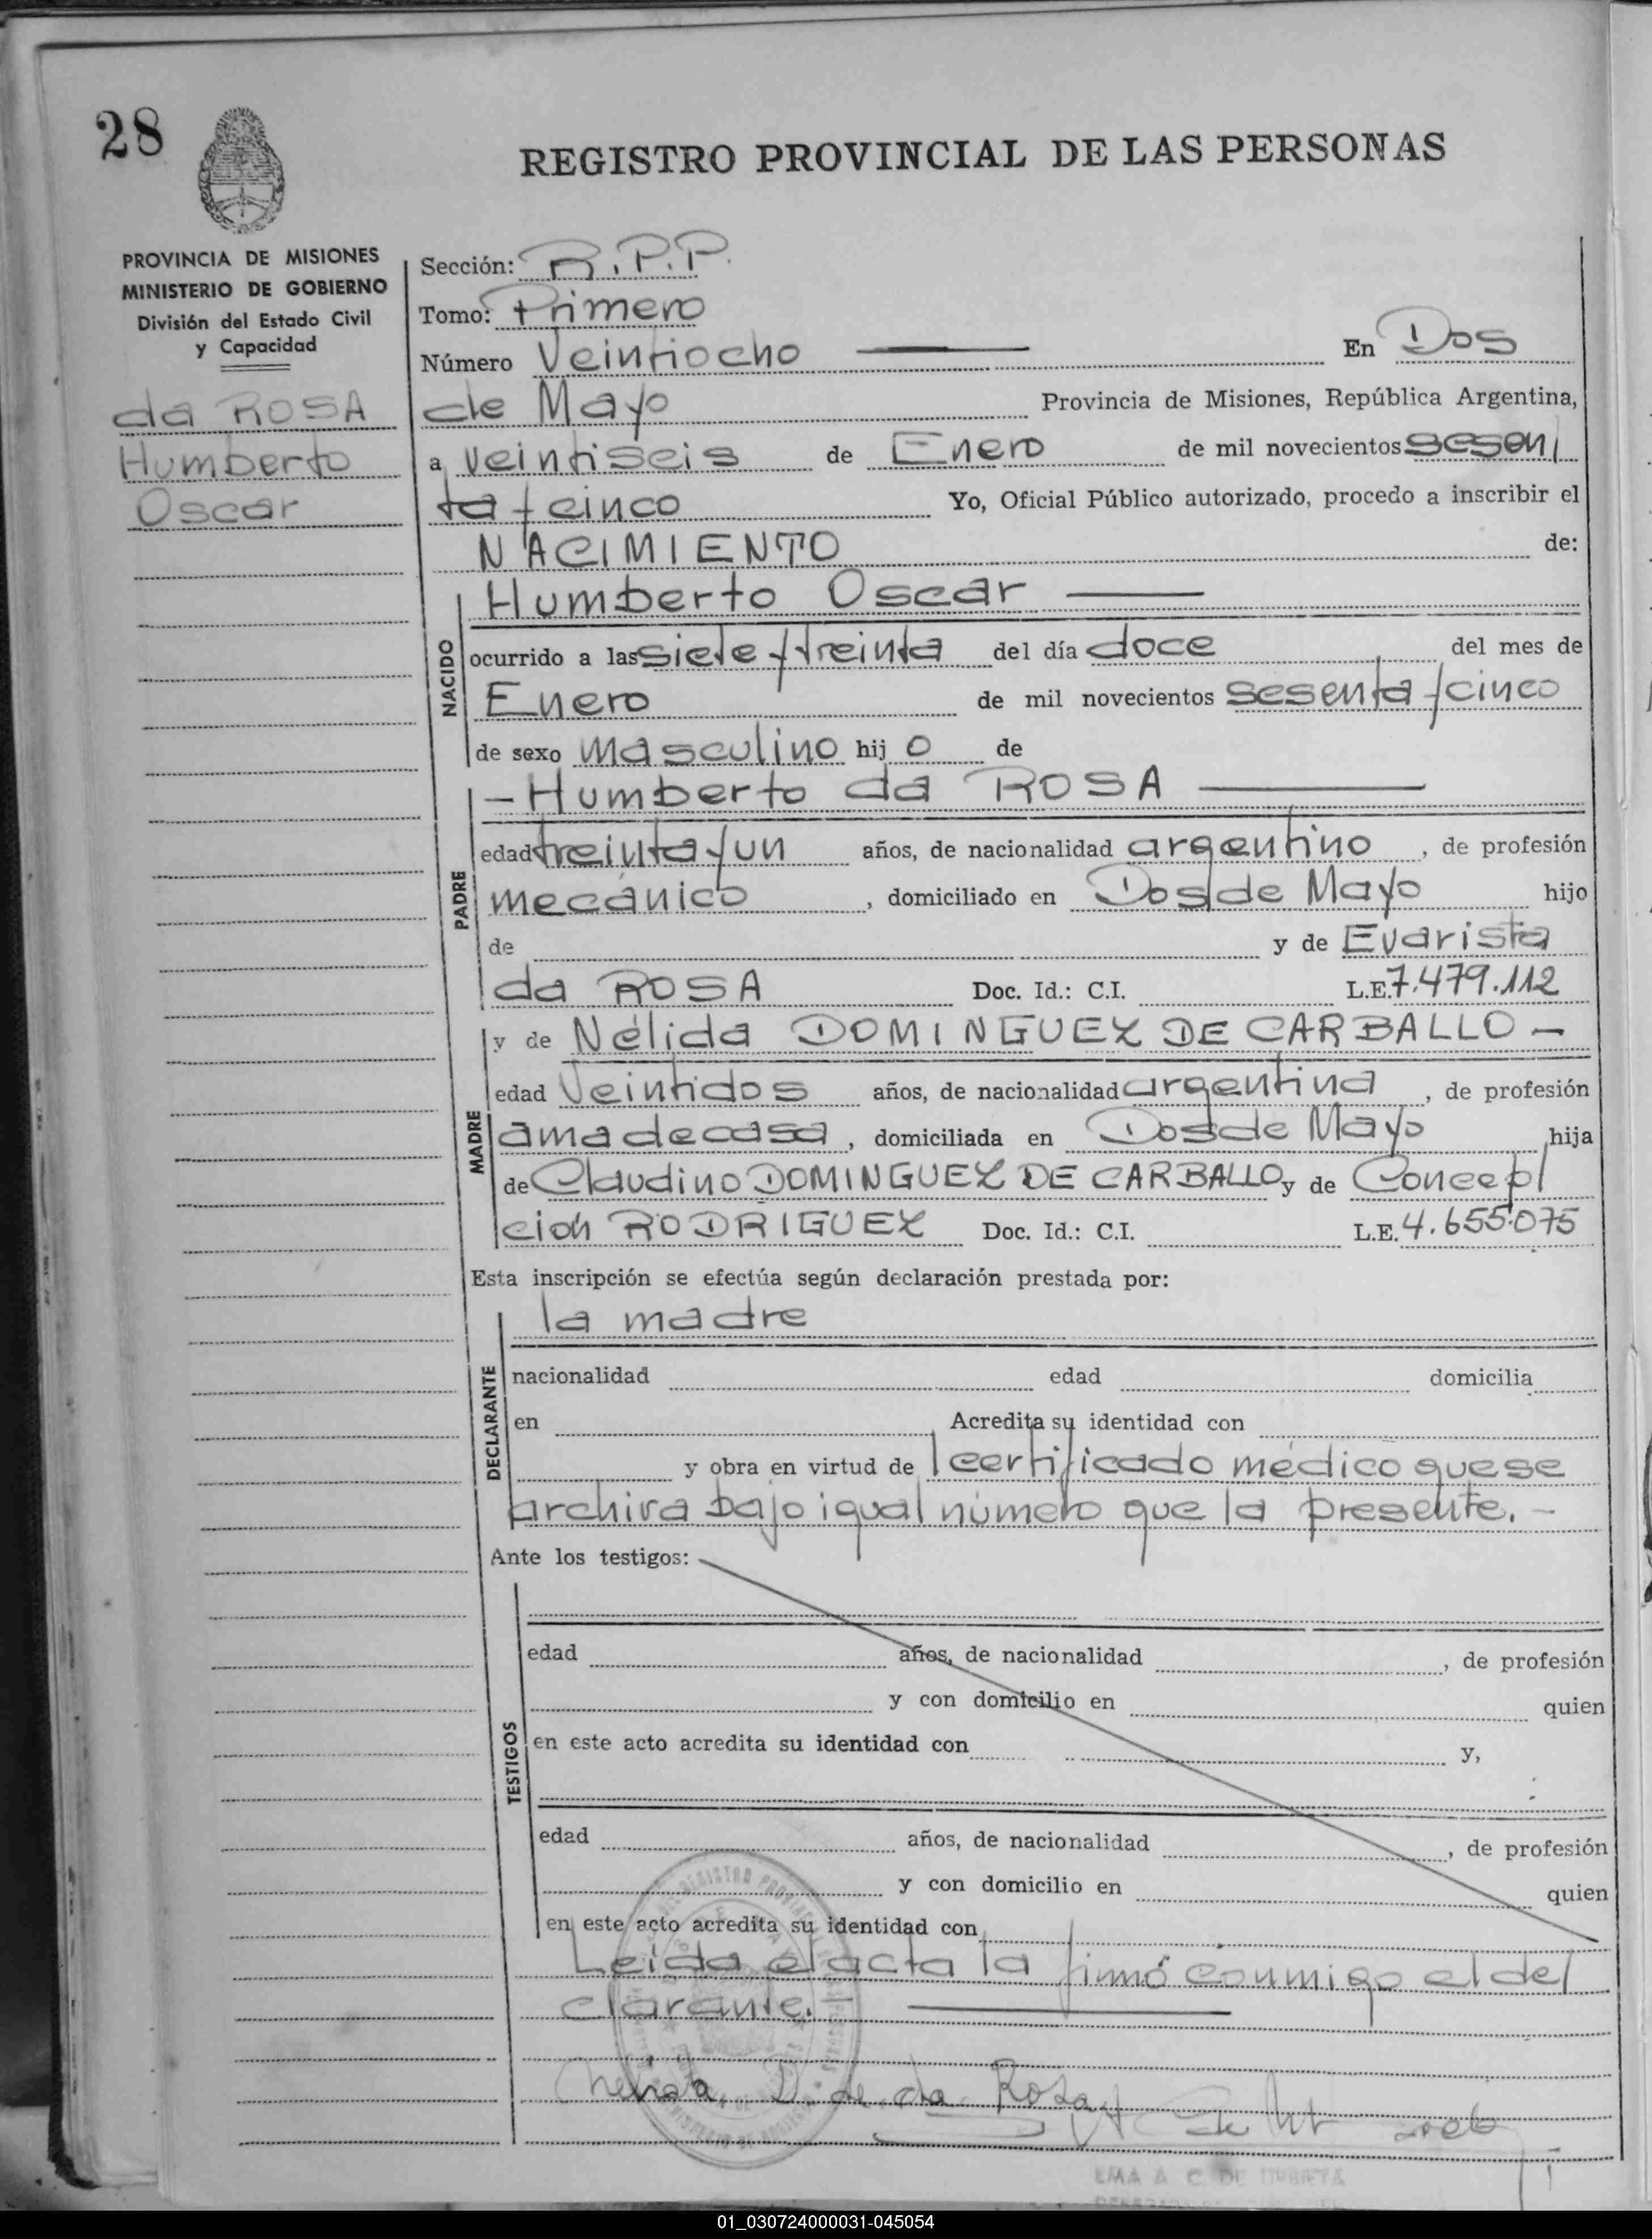 28
REGISTRO PROVINCIAL DE LAS PERSONAS
PROVINCIA DE MISIONES
MINISTERIO DE GOBIERNO
División del Estado Civil
y Capacidad
da ROSA
Humberto
Oscar
Sección: R.P.P.
Tomo: Primero
Número Veintiocho En Dos
de Mayo Provincia de Misiones, República Argentina,
a veintiseis de Enero de mil novecientos sesen/
ta y cinco Yo, Oficial Público autorizado, procedo a inscribir el
NACIMIENTO de:
NACIDO
Humberto Oscar
ocurrido a las siete y treinta del día doce del mes de
Enero de mil novecientos sesenta y cinco
de sexo masculino hij o de
PADRE
- Humberto da ROSA
edad treinta y un años, de nacionalidad argentino, de profesión
mecánico, domiciliado en Dos de Mayo hijo
de y de Evarista
da ROSA Doc. Id.: C.I. L.E. 7.479.112
MADRE
y de Nélida DOMINGUEZ DE CARBALLO -
edad Veintidos años, de nacionalidad argentina, de profesión
ama de casa, domiciliada en Dos de Mayo hija
de Claudino DOMINGUEZ DE CARBALLO y de Concep/
ción RODRIGUEZ Doc. Id.: C.I. L.E. 4.655.075
Esta inscripción se efectúa según declaración prestada por:
DECLARANTE
la madre
nacionalidad edad domicilia
en Acredita su identidad con
y obra en virtud de certificado médico que se
archiva bajo igual número que la presente. -
Ante los testigos:
TESTIGOS
edad años, de nacionalidad , de profesión
y con domicilio en quien
en este acto acredita su identidad con y,
edad años, de nacionalidad , de profesión
y con domicilio en quien
en este acto acredita su identidad con
Leida el acta la firmó conmigo el de/
clarante. -
D. de da Rosa
01_030724000031-045054